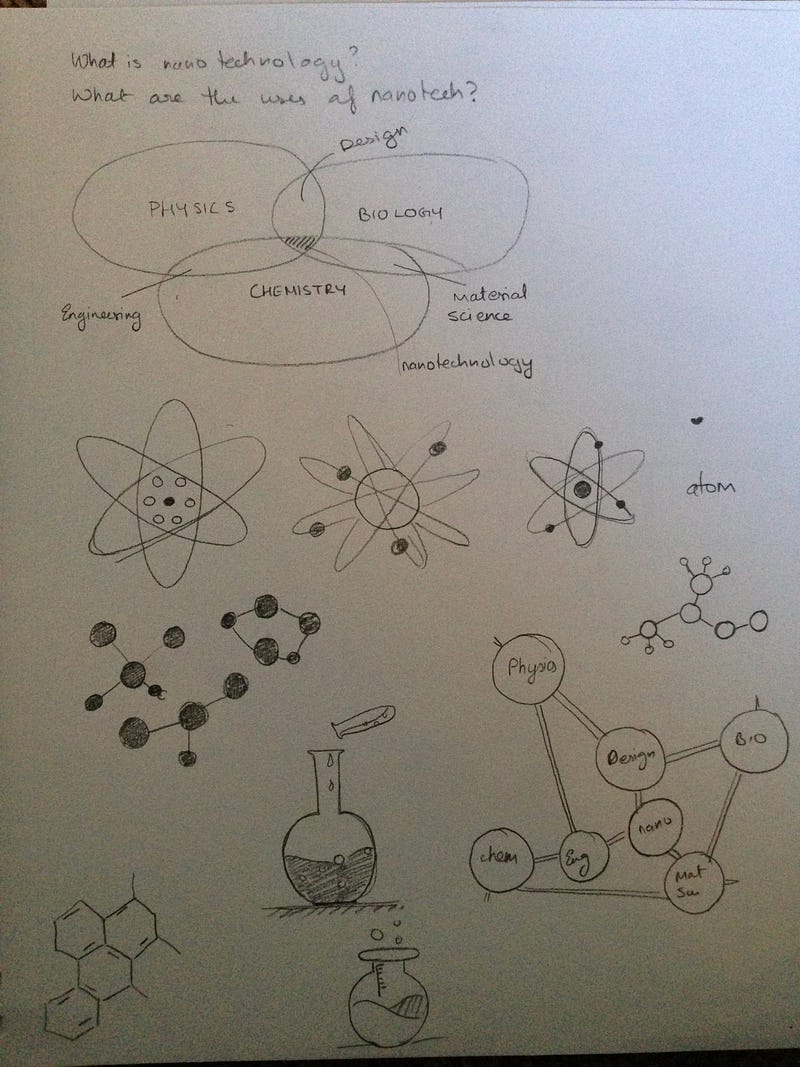 What is nano technology?
What are the uses of nanotech?
Design
PHYSICS
BIOLOGY
CHEMISTRY
Engineering
Material
science
nanotechnology
atom
Physics
Design
BIO
nano
chem
Eng
Mat
Sci